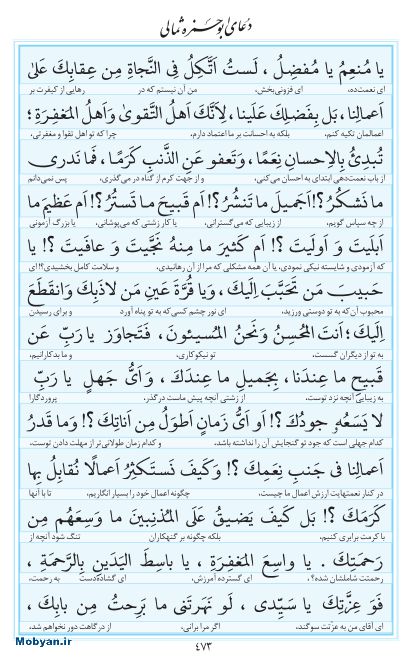 دعای ابوحمزه ثمالی
یا مُنعِمُ یا مُفضِلُ ، لَستُ اَتَّکِلُ فِی النَّجاةِ مِن عِقابِکَ عَلیٰ
ای نعمت‌ده، ای فزونی‌بخش، من آن نیستم که در رهایی از کیفرت بر
اَعمالِنا، بَل بِفَضلِکَ عَلَینا، لِاَنَّکَ اَهلُ التَّقویٰ وَاَهلُ المَغفِرَةِ؛
اعمالمان تکیه کنم، بلکه به احسانت بر ما اعتماد دارم، چرا که تو اهل تقوا و مغفرتی،
تُبدِئُ بِالاِحسانِ نِعَمًا، وَتَعفو عَنِ الذَّنبِ کَرَمًا، فَما نَدری
از باب نعمت‌دهی ابتدای به احسان می‌کنی، و از جهت کرم از گناه در می‌گذری، پس نمی‌دانم
ما نَشکُرُ ؟! اَجَمیلَ ما تَنشُرُ ؟! اَم قَبیحَ ما تَستُرُ ؟! اَم عَظیمَ ما
از چه سپاس گویم، از زیبایی که می‌گسترانی، یا کار زشتی که می‌پوشانی، یا بزرگ آزمونی
اَبلَیتَ وَ اَولَیتَ ؟! اَم کَثیرَ ما مِنهُ نَجَّیتَ وَ عافَیتَ ؟! یا
که آزمودی و شایسته نیکی نمودی، یا آن همه مشکلی که مرا از آن رهانیدی، و سلامت کامل بخشیدی؟! ای
حَبیبَ مَن تَحَبَّبَ اِلَیکَ ، وَیا قُرَّةَ عَینِ مَن لاذَبِکَ وَانقَطَعَ
محبوب آن‌که به تو دوستی ورزید، ای نور چشم کسی‌که به تو پناه آورد و برای رسیدن
اِلَیکَ؛ اَنتَ المُحسِنُ وَنَحنُ المُسیئونَ، فَتَجاوَز یا رَبِّ عَن
به تو از دیگران گسست، تو نیکوکاری، و ما بدکارانیم،
قَبیحِ ما عِندَنا ، بِجَمیلِ ما عِندَکَ ، وَاَیُّ جَهلٍ یا رَبِّ
به زیبایی آنچه نزد توست، از زشتی آنچه پیش ماست درگذر، پروردگارا
لا یَسَعُهُ جودُکَ ؟! اَو اَیُّ زَمانٍ اَطوَلُ مِن اَناتِکَ ؟! وَما قَدرُ
کدام جهلی است که جود تو گنجایش آن را نداشته باشد، و کدام زمان طولانی‌تر از مهلت دادن توست،
اَعمالِنا فی جَنبِ نِعَمِکَ ؟! وَکَیفَ نَستَکثِرُ اَعمالًا نُقابِلُ بِها
در کنار نعمتهایت ارزش اعمال ما چیست، چگونه اعمال خود را بسیار انگاریم، تا با آنها
کَرَمَکَ ؟! بَل کَیفَ یَضیقُ عَلَی المُذنِبینَ ما وَسِعَهُم مِن
با کرمت برابری کنیم، بلکه چگونه بر گنهکاران تنگ شود آنچه از
رَحمَتِکَ . یا واسِعَ المَغفِرَةِ ، یا باسِطَ الیَدَینِ بِالرَّحمَةِ ،
رحمتت شاملشان شده؟ ، ای گسترده آمرزش، ای گشاده‌دست به رحمت،
فَوَ عِزَّتِکَ یا سَیِّدی ، لَو نَهَرتَنی ما بَرِحتُ مِن بابِکَ ،
ای آقای من به عزّتت سوگند، اگر مرا برانی، از درگاهت دور نخواهم شد،
۴۷۳
Mobyan.ir